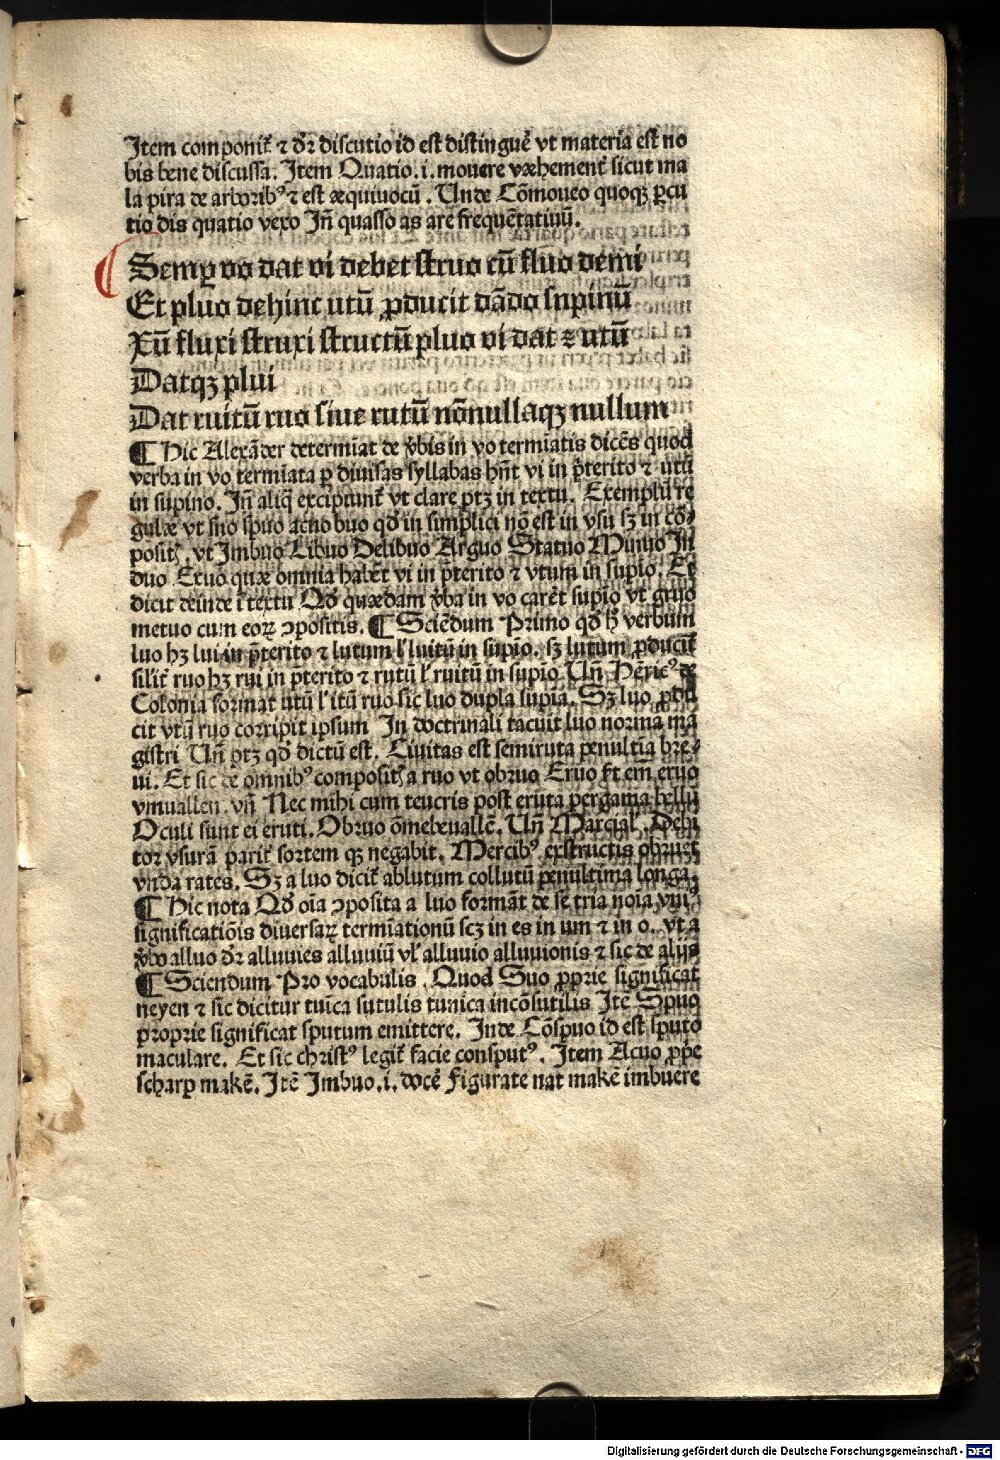 Item componit᷑ ⁊ dr̄ discutio id est distinguē vt materia est no
bis bene discussa. Item Quatio .i. mouere væhement᷑ sicut ma
la pira de arborib⁹ ⁊ est æquiuocū. Unde Cōmoueo quoqꝫ ꝑcu
tio dis quatio vexo Iñ quasso as are frequētatiuū.
Semꝑ vo dat vi debet struo cū fluo demi
Et pluo dehinc utū ꝓducit dādo supinū
Xū fluxi struxi structū pluo vi dat ⁊ utū
Datqꝫ plui
Dat ruitū ruo siue rutū nōnullaqꝫ nullum
¶ Hic Alexāder determiat de v̄bis in vo termīatis dicēs quod
verba in vo termīata ꝑ diuisas syllabas hn̄t vi in p̄terito ⁊ utū
in supino. Iñ aliq̄ excipiunt᷑ vt clare ptꝫ in textu. Exemplū re
gulæ vt suo spuo acuo buo qd̄ in simplici nō est in vsu sꝫ in cō⸗
posit᷒. vt Imbuo Libuo Delibuo Arguo Statuo Minuo In
duo Exuo quæ omnia habēt vi in p̄terito ⁊ vtum in supīo. Et
dicit deinde ī textu Qd̄ quædam v̄ba in vo carēt supīo vt gruo
metuo cum eoꝝ ↄpositis. ¶ Sciēdum Primo qd̄ h̄ verbum
luo hꝫ lui in p̄terito ⁊ lutum ł luitū in supīo. sꝫ lutum ꝓducit᷑
silit᷑ ruo hꝫ rui in p̄terito ⁊ rutū ł ruitū in supīo Uñ Hēric⁹ de
Colonia format utū ł itū ruo sic luo dupla supīa. Sꝫ luo ꝓdu
cit vtū ruo corripit ipsum In doctrinali tacuit luo norma ma
gistri Uñ ptꝫ qd̄ dictū est. Ciuitas est semiruta penultīa bre⸗
ui. Et sic de omnib⁹ composit᷒ a ruo vt obruo Eruo
vmuallen. vñ Nec mihi cum teucris post eruta pergama bellū
Oculi sunt ei eruti. Obruo Uñ Marcial᷒. Debi
tor vsurā parit᷑ sortem qꝫ negabit. Mercib⁹ exstructis obruet
vnda rates. Sꝫ a luo dicit᷑ ablutum collutū penultima longa.
¶ Hic nota Qd̄ oīa ↄposita a luo formāt de se tria noīa vni⁹
significatiōis diuersaꝝ termīationū scꝫ in es in um ⁊ in o. vt a
v̄bo alluo dr̄ alluuies alluuiū vł alluuio alluuionis ⁊ sic de alijs
¶ Sciendum Pro vocabulis. Quod Suo ꝓprie significat
neyen ⁊ sic dicitur tuīca sutulis tunica incōsutilis Itē Spuo
proprie significat sputum emittere. Inde Cōspuo id est sputo
maculare. Et sic christ⁹ legit᷑ facie consput⁹. Item Acuo ꝓpͤ
scharp makē. Itē Imbuo .i. docē figurate nat makē imbuere
Digitalisierung gefördert durch die Deutsche Forschungsgemeinschaft - DFG